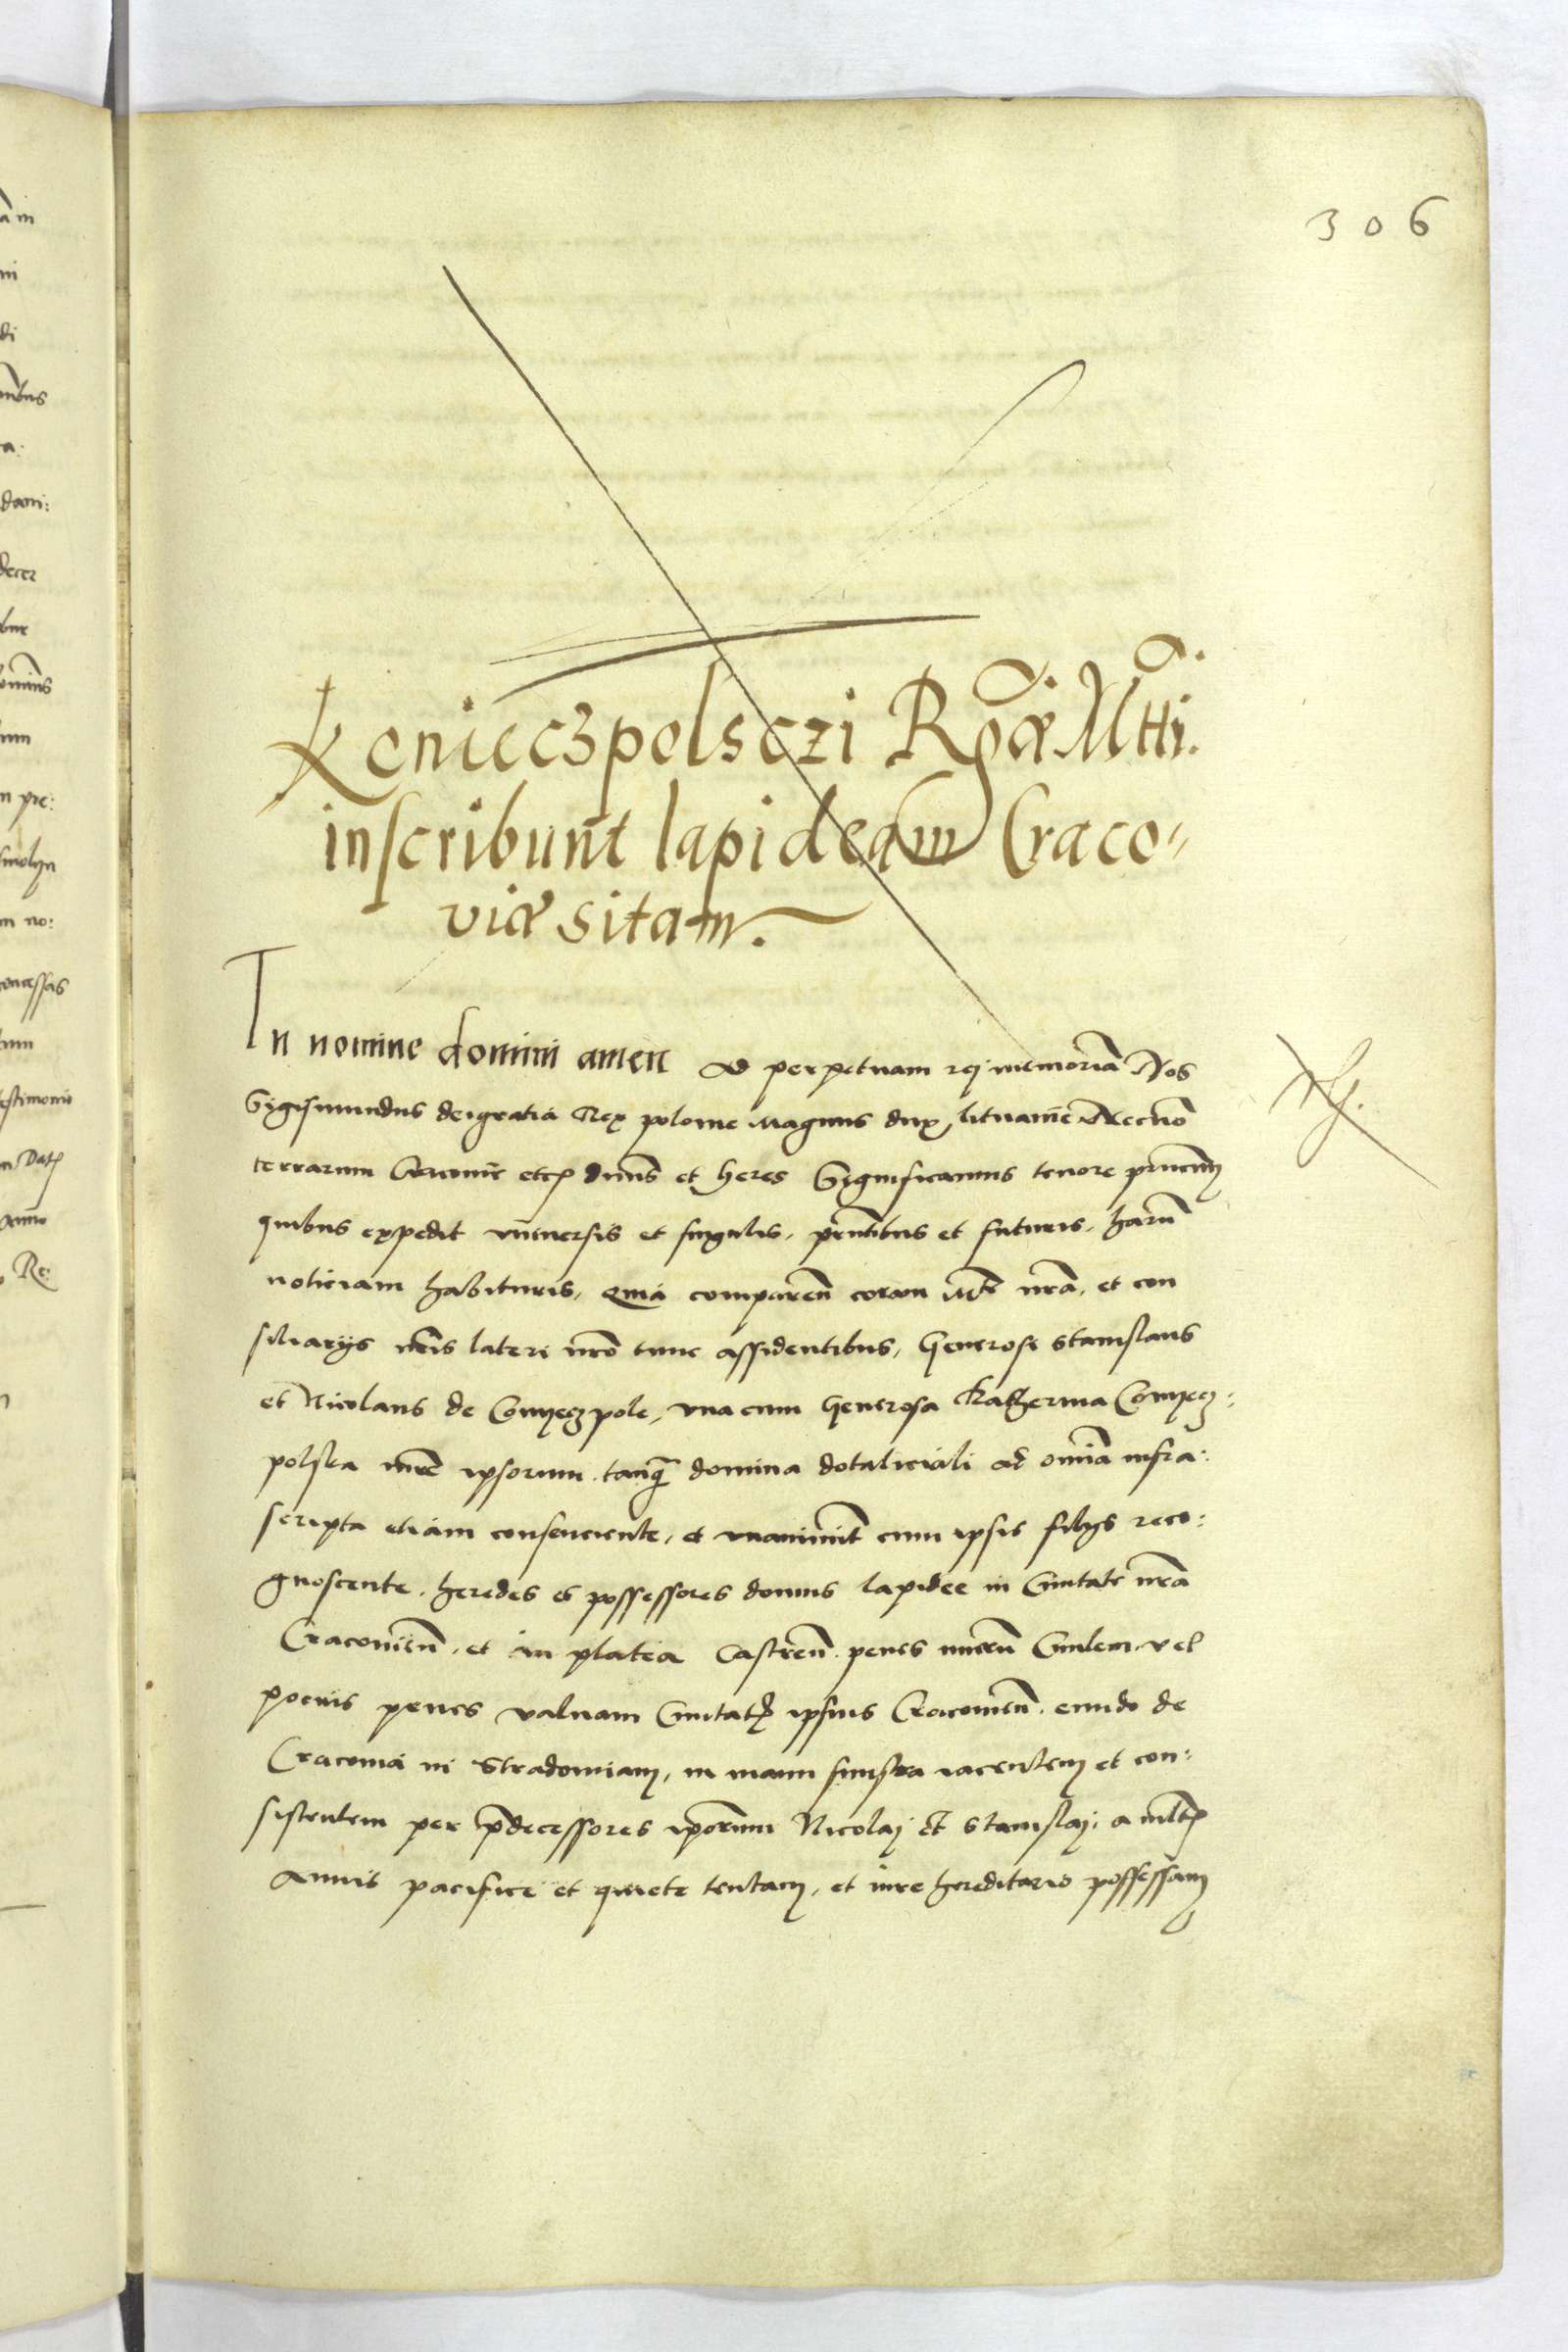 306
Koniecz polsczi R. giæ Mtti.
inscribunt lapideam Craco-
viæ sitam.
In nomine domini amen Ad perpetuam rej memoriã Nos
Sigismundus dei gratia Rex polonie Magnus dux lituanie Necnõ
terrarum Cracovie etcʒ dñus et heres Significamus tenore pñcium
quibus expedit vniuersis et singulis, pñtibus et futuris, harũ
noticiam habituris, Quia comparẽn coram Mte nr̃a, et con
siliarijs nr̃is lateri nr̃o tunc assidentibus, Generosi Stanislaus
et Nicolaus de Conyeczpole, vna cum Generosa Katherina Conyecz:
polska mr̃e ipsorum tanq̃ domina dotaliciali ad oñia infra:
scripta etiam consenciente, et vnanimit̃ cum ipsis filijs reco:
gnoscente, heredes et possessores domus lapidee in Ciuitate nr̃a
Cracovieñ, et in platea Castreñ penes murũ Ciuilem, vel
pocius penes valuam Ciuitatʒ ipsius Cracovieñ, eundo de
Cracovia in Stradomiam, in manu sinistra iacentem et con:
sistentem per p̃decessores ip̃orum Nicolaj et Stanislaj, a mltʒ
Annis pacifice et quiete tentam, et iure hereditario possessam